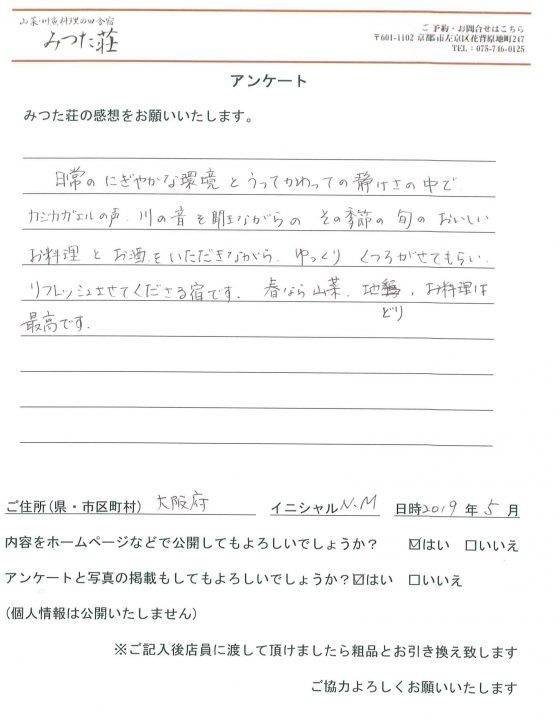 山菜・川魚料理の田舎宿
みつた荘
ご予約・お問合せはこちら
〒601-1102 京都市左京区花背原地町247
TEL：075-746-0125
アンケート
みつた荘の感想をお願いいたします。
日常のにぎやかな環境とうってかわっての静けさの中で
カジカガエルの声、川の音を聞きながらのその季節の旬のおいしい
お料理とお酒をいただきながら、ゆっくりくつろがせてもらい、
リフレッシュさせてくださる宿です。春なら山菜、地、お料理は
どり
最高です。
ご住所(県・市区町村) 大阪府 イニシャル N.M 日時2019年5月
内容をホームページなどで公開してもよろしいでしょうか？ ☑はい □いいえ
アンケートと写真の掲載もしてもよろしいでしょうか？☑はい □いいえ
(個人情報は公開いたしません)
※ご記入後店員に渡して頂けましたら粗品とお引き換え致します
ご協力よろしくお願いいたします